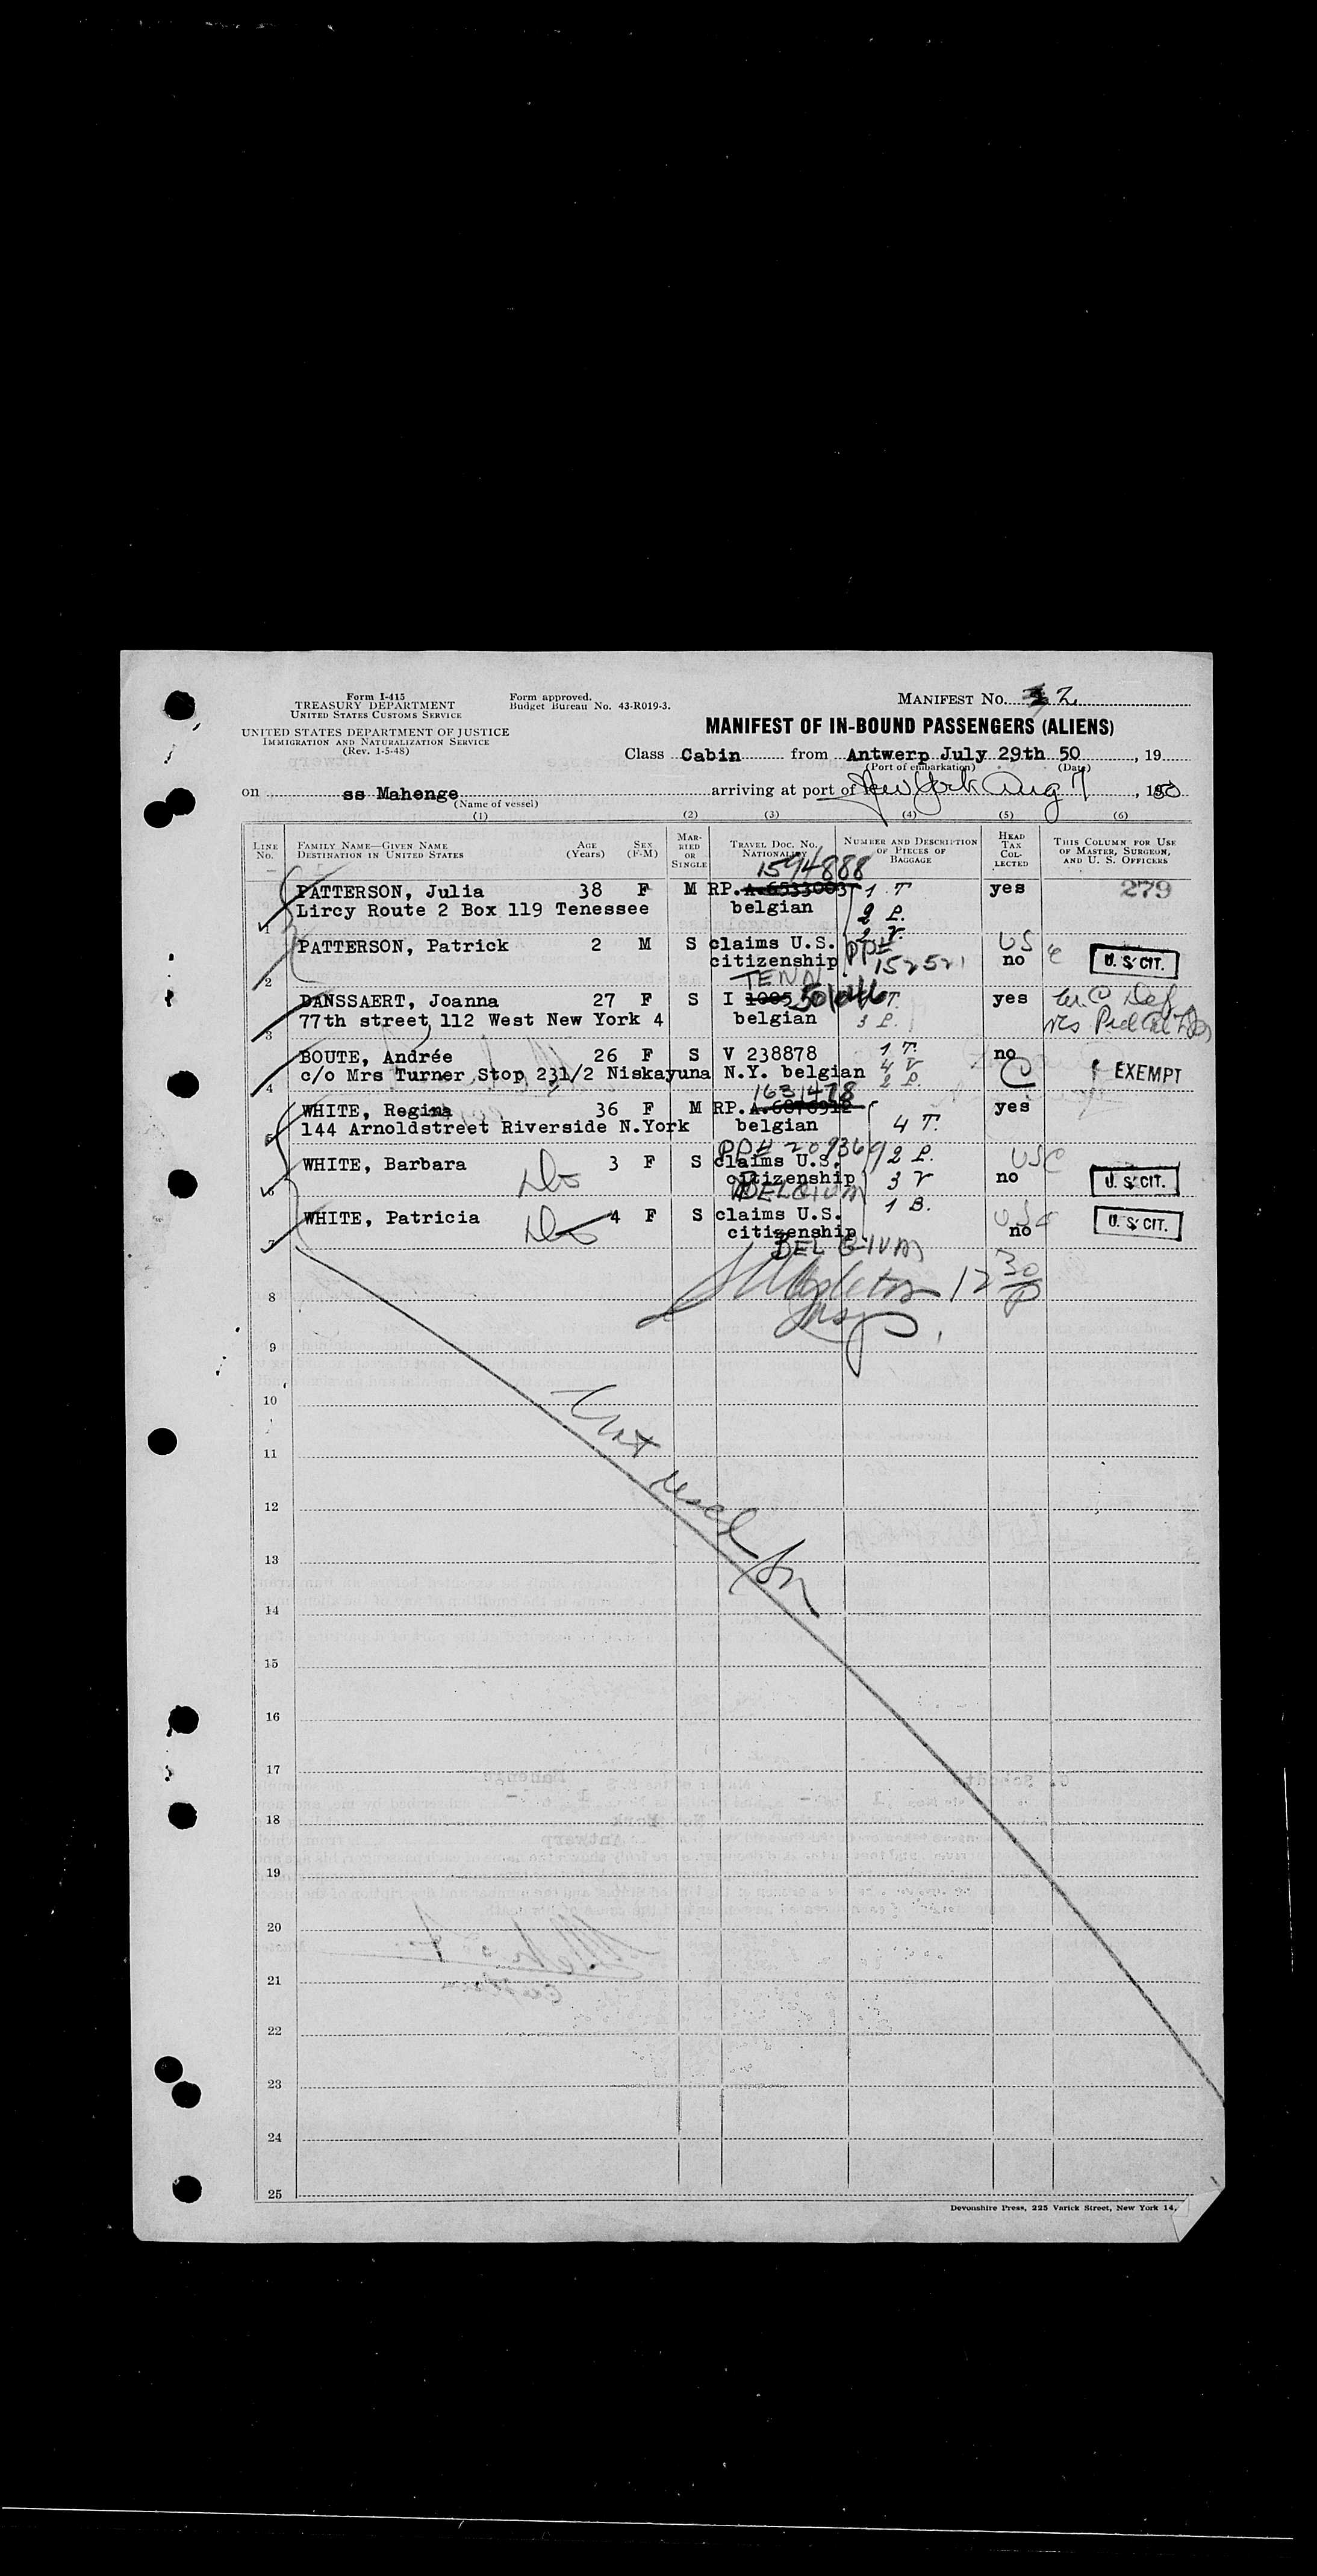 Form I-415
TREASURY DEPARTMENT
UNITED STATES CUSTOMS SERVICE
UNITED STATES DEPARTMENT OF JUSTICE
IMMIGRATION AND NATURALIZATION SERVICE
(Rev. 1-5-48)
Form approved.
Budget Bureau No. 43-R019-3.
MANIFEST No. 2
MANIFEST OF IN-BOUND PASSENGERS (ALIENS)
Class Cabin from Antwerp July 29th 50, 19
(Port of embarkation) (Date)
on ss Mahenge arriving at port of New York Aug 7, 1950
(Name of vessel)
(1) (2) (3) (4) (5) (6)
LINE No. FAMILY NAME—GIVEN NAME DESTINATION IN UNITED STATES AGE (Years) SEX (F-M) MARRIED OR SINGLE TRAVEL DOC. No. NATIONALITY NUMBER AND DESCRIPTION OF PIECES OF BAGGAGE HEAD TAX COLLECTED THIS COLUMN FOR USE OF MASTER, SURGEON, AND U. S. OFFICERS
1594888
PATTERSON, Julia 38 F M RP. A-6533003 1 T yes 279
1 Lircy Route 2 Box 119 Tenessee belgian 2 P.
2 V.
PATTERSON, Patrick 2 M S claims U.S. US no U. S. CIT.
2 citizenship 152521
TENN
DANSSAERT, Joanna 27 F S I 1005 501046 T. yes
3 77th street, 112 West New York 4 belgian 3 P.
BOUTE, Andrée 26 F S V 238878 1 T. no
4 c/o Mrs Turner Stop 231/2 Niskayuna N.Y. belgian 4 V 2 P. C EXEMPT
1631478
WHITE, Regina 36 F M RP. A-6876912 yes
5 144 Arnoldstreet Riverside N.York belgian 4 T.
PP# 209369 2 P. USC
WHITE, Barbara Do 3 F S claims U.S. no
6 citizenship 3 V U. S. CIT.
BELGIUM
WHITE, Patricia Do 4 F S claims U.S. 1 B. USC no U. S. CIT.
7 citizenship
BELGIUM
12 30 P
8
Insp.
9
10
11
12
13
14
15
16
17
18
19
20
21
22
23
24
25
Devonshire Press, 225 Varick Street, New York 14,